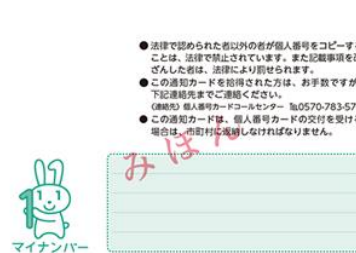 ●法律で認められた者以外の者が個人番号をコピーす
ことは、法律で禁止されています。また記載事項を
ざんした者は、法律により罰せられます。
●この通知カードを拾得された方は、お手数ですが
下記連絡先までご連絡ください。
〈連絡先〉個人番号カードコールセンター ℡0570-783-57
●この通知カードは、個人番号カードの交付を受け
場合は、市町村に返納しなければなりません。
みほん
1
マイナンバー